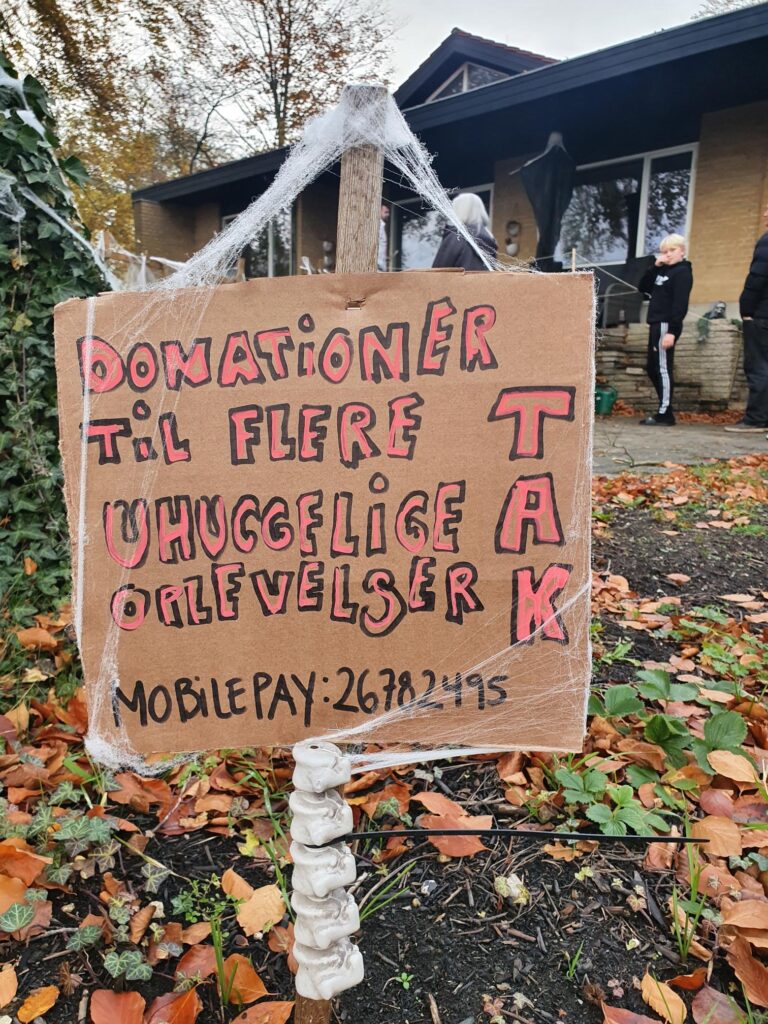 DONATIONER
TIL FLERE
UHUGGELIGE
OPLEVELSER
TAK
MOBILEPAY: 26782495